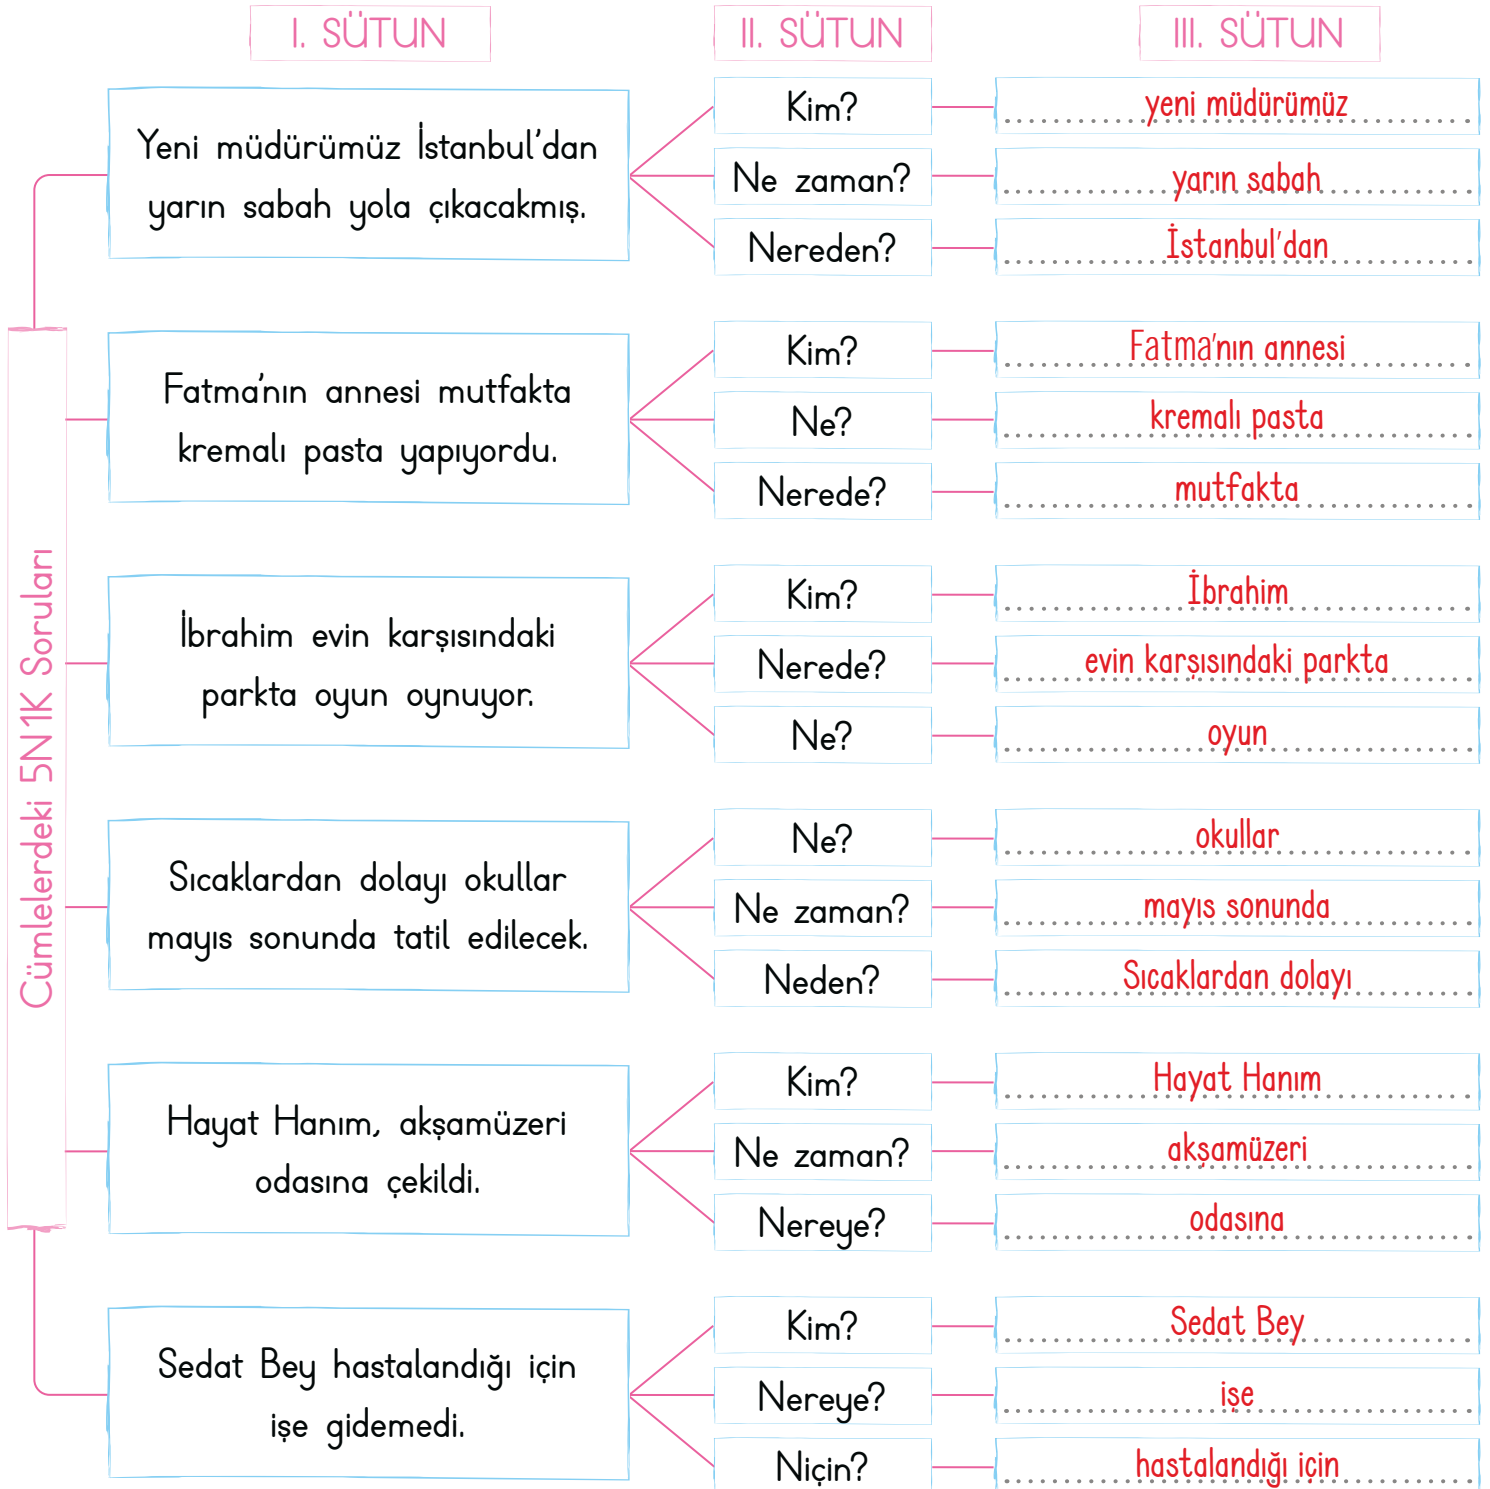 I. SÜTUN
II. SÜTUN
III. SÜTUN
Cümlelerdeki 5N1K Soruları
Yeni müdürümüz İstanbul'dan
yarın sabah yola çıkacakmış.
Kim?
yeni müdürümüz
Ne zaman?
yarın sabah
Nereden?
İstanbul'dan
Fatma'nın annesi mutfakta
kremalı pasta yapıyordu.
Kim?
Fatma'nın annesi
Ne?
kremalı pasta
Nerede?
mutfakta
İbrahim evin karşısındaki
parkta oyun oynuyor.
Kim?
İbrahim
Nerede?
evin karşısındaki parkta
Ne?
oyun
Sıcaklardan dolayı okullar
mayıs sonunda tatil edilecek.
Ne?
okullar
Ne zaman?
mayıs sonunda
Neden?
Sıcaklardan dolayı
Hayat Hanım, akşamüzeri
odasına çekildi.
Kim?
Hayat Hanım
Ne zaman?
akşamüzeri
Nereye?
odasına
Sedat Bey hastalandığı için
işe gidemedi.
Kim?
Sedat Bey
Nereye?
işe
Niçin?
hastalandığı için